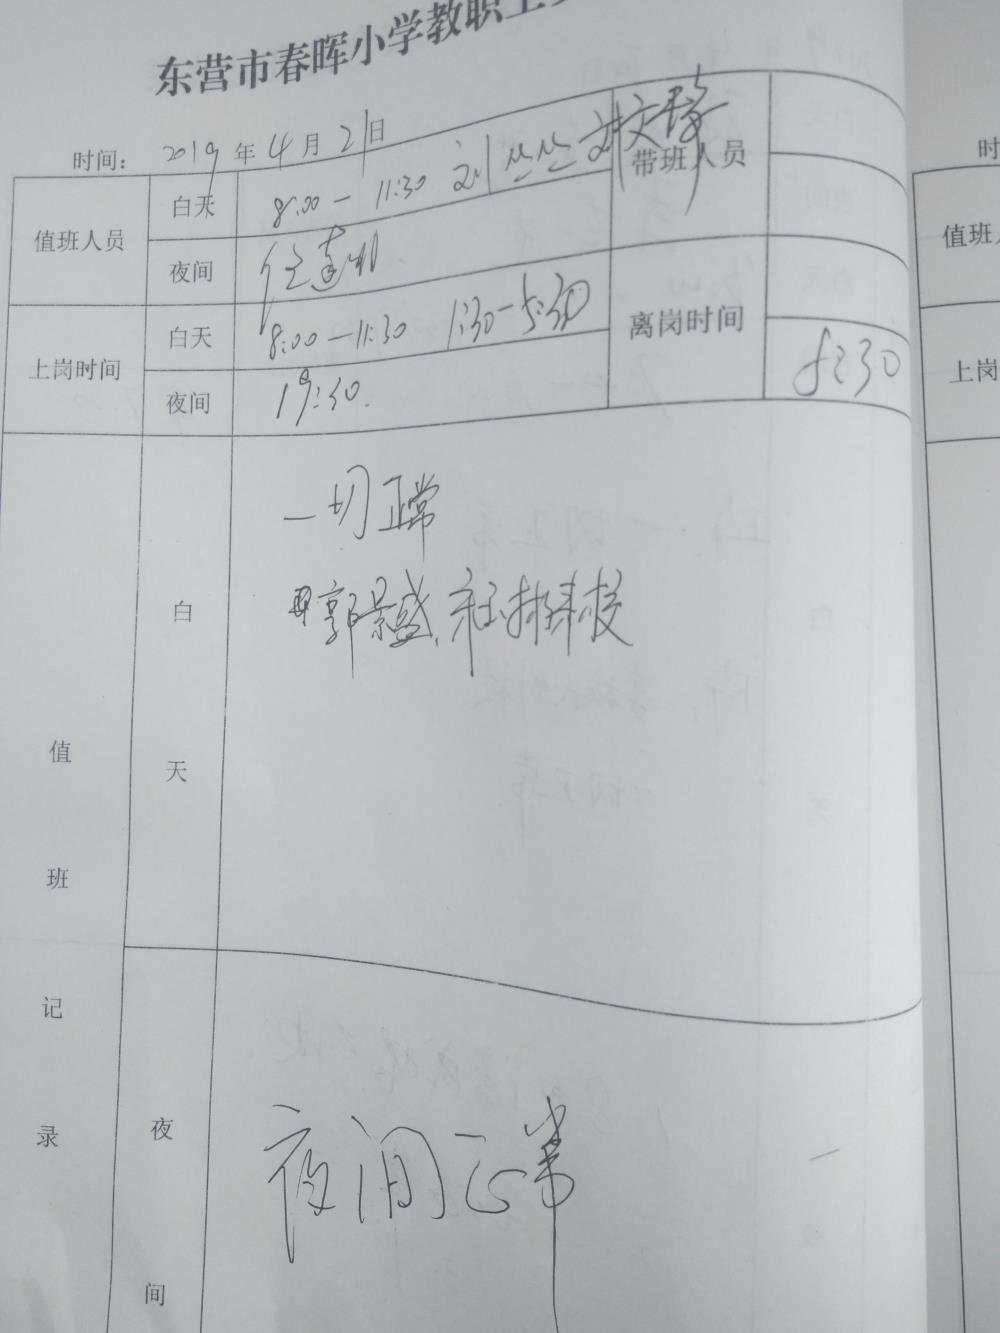 东营市春晖小学教职工
时间: 2019 年 4 月 21 日
值班人员 白天 8:00 — 11:30 刘丝丝 刘文 带班人员
夜间 任
上岗时间 白天 8:00 — 11:30 1:30 — 5:30 离岗时间
夜间 19:30. 8:30
一切正常
郭景盛、
白
天
值
班
记
录
夜间正常
夜
间
时
值班人
上岗